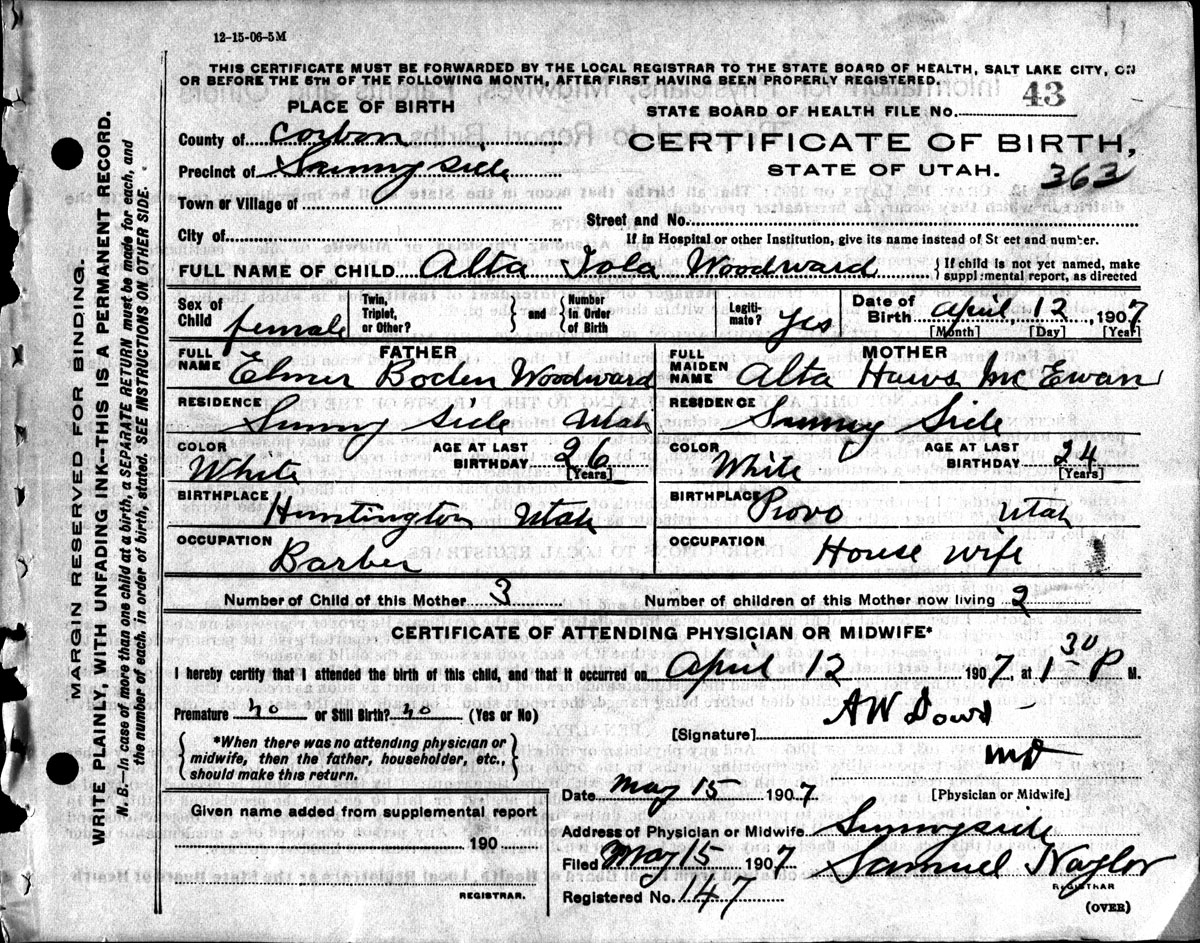 12-15-06-5M
THIS CERTIFICATE MUST BE FORWARDED BY THE LOCAL REGISTRAR TO THE STATE BOARD OF HEALTH, SALT LAKE CITY, ON
OR BEFORE THE 5TH OF THE FOLLOWING MONTH, AFTER FIRST HAVING BEEN PROPERLY REGISTERED.
PLACE OF BIRTH
STATE BOARD OF HEALTH FILE No. 43
County of Corbon
CERTIFICATE OF BIRTH,
Precinct of Sunny side
STATE OF UTAH. 363
Town or Village of
Street and No.
City of
If in Hospital or other Institution, give its name instead of St eet and number.
FULL NAME OF CHILD Alta Iola Woodward { If child is not yet named, make supplemental report, as directed
Sex of Child female Twin, Triplet, or Other? } and { Number in Order of Birth Legiti- mate? yes Date of Birth April, 12, 1907
[Month] [Day] [Year]
FATHER
MOTHER
FULL NAME Elmer Boden Woodward
FULL MAIDEN NAME Alta Haws McEwan
RESIDENCE Sunny side Utah
RESIDENCE Sunny Side
COLOR White AGE AT LAST BIRTHDAY 26 [Years]
COLOR White AGE AT LAST BIRTHDAY 24 [Years]
BIRTHPLACE Huntington Utah
BIRTHPLACE Provo Utah
OCCUPATION Barber
OCCUPATION House wife
Number of Child of this Mother 3
Number of children of this Mother now living 2
CERTIFICATE OF ATTENDING PHYSICIAN OR MIDWIFE*
I hereby certify that I attended the birth of this child, and that it occurred on April 12 1907, at 1 30 P M.
Premature no or Still Birth? no (Yes or No)
[Signature] A W Dowd
MD
*When there was no attending physician or
midwife, then the father, householder, etc.,
should make this return.
Date May 15 1907
[Physician or Midwife]
Given name added from supplemental report
190
REGISTRAR.
Address of Physician or Midwife Sunnyside
Filed May 15 1907 Samuel Naylor
REGISTRAR
Registered No. 147
(OVER)
MARGIN RESERVED FOR BINDING.
WRITE PLAINLY, WITH UNFADING INK—THIS IS A PERMANENT RECORD.
N. B.—In case of more than one child at a birth, a SEPARATE RETURN must be made for each, and
the number of each, in order of birth, stated. SEE INSTRUCTIONS ON OTHER SIDE.